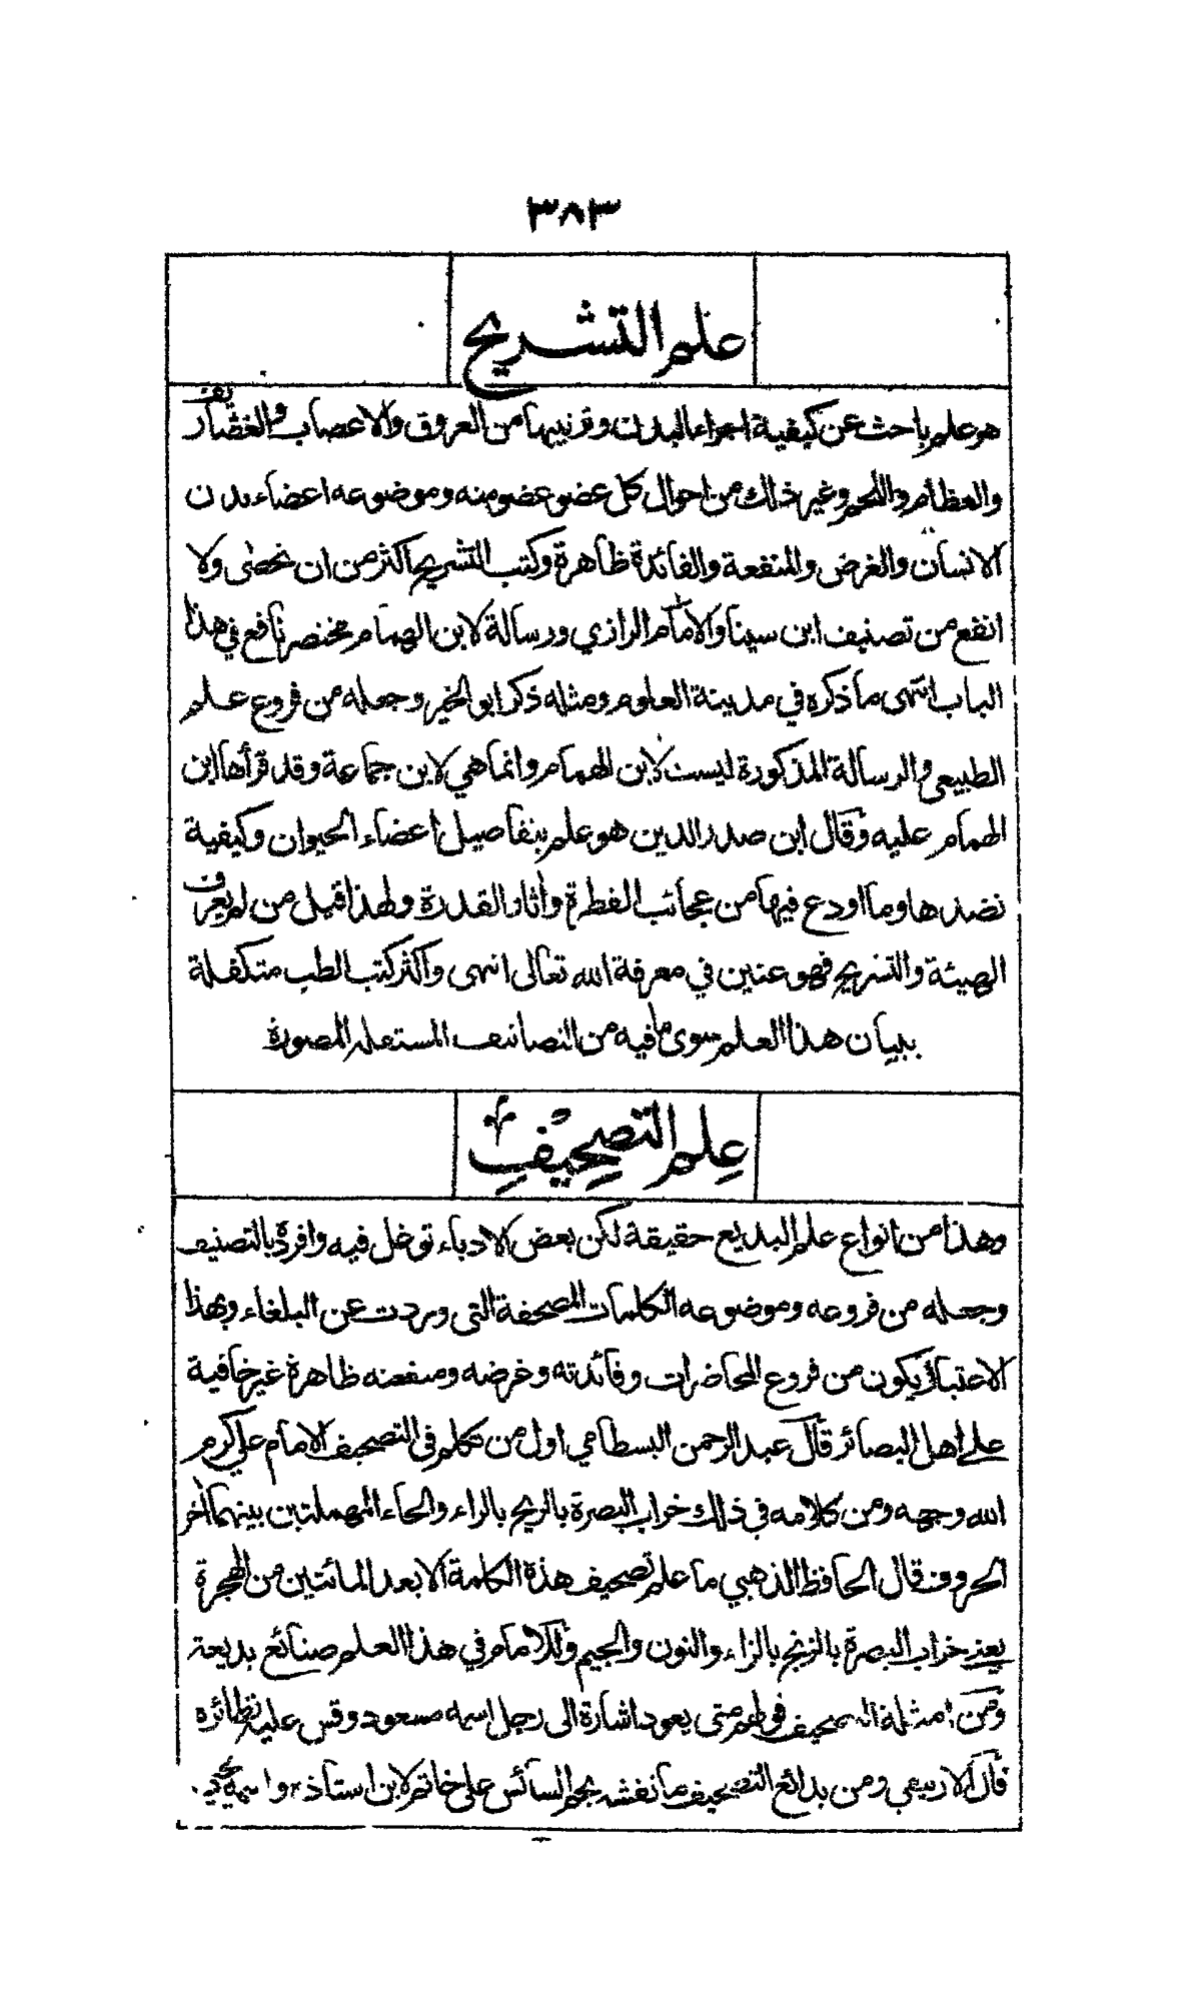 ٣٨٣
علم التشريح
هو علم باحث عن كيفية اجزاء البدن وترتيبها من العروق والاعصاب والغضاريف
والعظام واللحم وغير ذلك من احوال كل عضو عضو منه وموضوعه اعضاء بدن
الانسان والغرض والمنفعة والفائدة ظاهرة وكتب التشريح اكثر من ان تحصى ولا
انفع من تصنيف ابن سينا والامام الرازي ورسالة لابن الهمام مختصر نافع في هذا
الباب انتهى ما ذكره في مدينة العلوم ومثله ذكر ابو الخير وجعله من فروع علم
الطبيعي والرسالة المذكورة ليست لابن الهمام وانما هي لابن جماعة وقد قرأها ابن
الهمام عليه وقال ابن صدر الدين هو علم بتفاصيل اعضاء الحيوان وكيفية
نضدها وما اودع فيها من عجائب الفطرة واثار القدرة ولهذا قيل من لم يعرف
الهيئة والتشريح فهو عنين في معرفة الله تعالى انتهى واكثر كتب الطب متكفلة
ببيان هذا العلم سوى ما فيه من التصانيف المستقلة المصورة
علم التصحيف
وهذا من انواع علم البديع حقيقة لكن بعض الادباء توغل فيه وافرده بالتصنيف
وجعله من فروعه وموضوعه الكلمات المصحفة التى وردت عن البلغاء وبهذا
الاعتبار يكون من فروع المحاضرات وفائدته وغرضه ومنفعته ظاهرة غير خافية
على اهل البصائر قال عبد الرحمن البسطامي اول من تكلم فى التصحيف الامام علي كرم
الله وجهه ومن كلامه في ذلك خراب البصرة بالريح بالراء والحاء المهملتين بينهما اخر
الحروف قال الحافظ الذهبي ما علم تصحيف هذه الكلمة الا بعد المائتين من الهجرة
يعني خراب البصرة بالزنج بالزاء والنون والجيم وللامام في هذا العلم صنائع بديعة
ومن امثلة التصحيف قولهم متى يعود اشارة الى رجل اسمه مسعود وقس عليه نظائره
قال الارنيقي ومن بدائع التصحيف ما نقشه على خاتم لابن استاذه واسمه